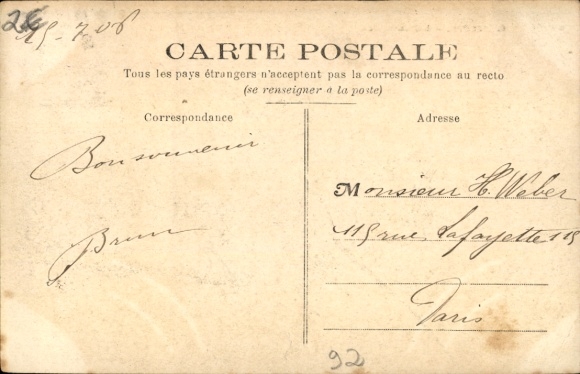 15-7 06
CARTE POSTALE
Tous les pays étrangers n'acceptent pas la correspondance au recto
(se renseigner à la poste)
Correspondance
Adresse
Bon souvenir
Brun
Monsieur H. Weber
115 rue Lafayette 115
Paris
92